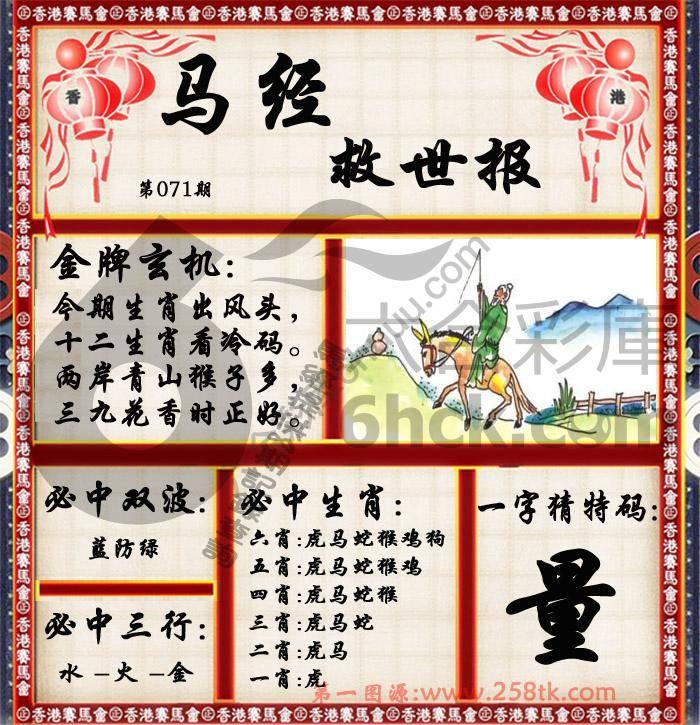 香港賽馬會
香
港
马经
救世报
第071期
金牌玄机:
今期生肖出风头,
十二生肖看冷码。
两岸青山猴子多,
三九花香时正好。
六合彩庫
6hck.com
必中双波:
蓝防绿
必中三行:
水–火–金
必中生肖:
六肖:虎马蛇猴鸡狗
五肖:虎马蛇猴鸡
四肖:虎马蛇猴
三肖:虎马蛇
二肖:虎马
一肖:虎
一字猜特码:
量
第一图源:www.258tk.com